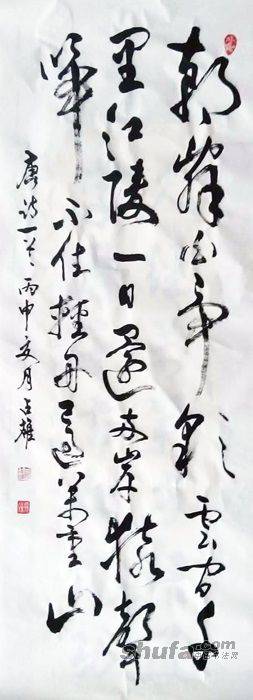 朝辞白帝彩云间千
里江陵一日还两岸猿声
啼不住轻舟已过万重山
唐诗一首丙申文月占雄
shufa.com